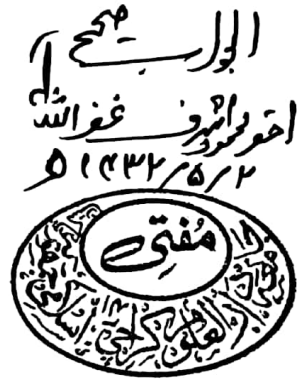 الجواب صحیح
احقر محمود اشرف غفر اللہ لہ
۲/۵/۱۴۳۲ھ
مفتی
دارالعلوم کراچی